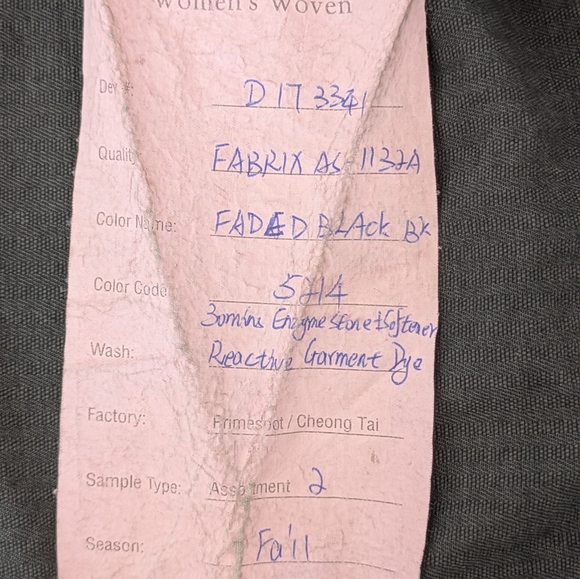 Women's Woven
Dev #: D17 3341
Quality: FABRIX AS-1132A
Color Name: FADED BLACK BK
Color Code 5214
30mins Enzyme stone + Softener
Wash: Reactive Garment Dye
Factory: Primespot / Cheong Tai
Sample Type: Assortment 2
Season: Fall